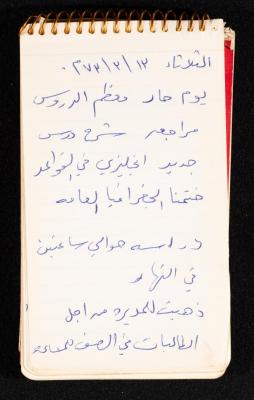 الثلاثاء ١٣/٣/٧٣
يوم حار معظم الدروس
مراجعه شرح درس
جديد انجليزي في القواعد
ختمنا الجغرافيا العامه
دراسه حوالي ساعتين
في النهار
ذهبت للمديره من اجل
الطالبات في الصف